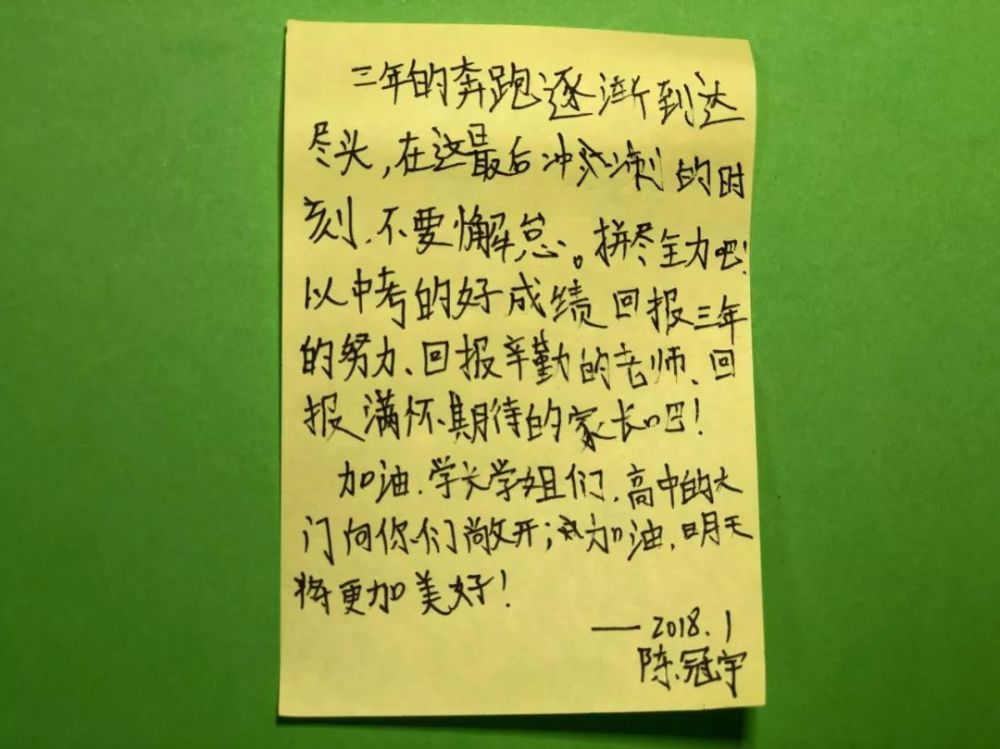 三年的奔跑逐渐到达
尽头,在这最后冲刺的时
刻.不要懈怠。拼尽全力吧!
以中考的好成绩回报三年
的努力、回报辛勤的老师、回
报满怀期待的家长吧!
加油.学长学姐们.高中的大
门向你们敞开;加油.明天
将更加美好!
——2018.1
陈冠宇